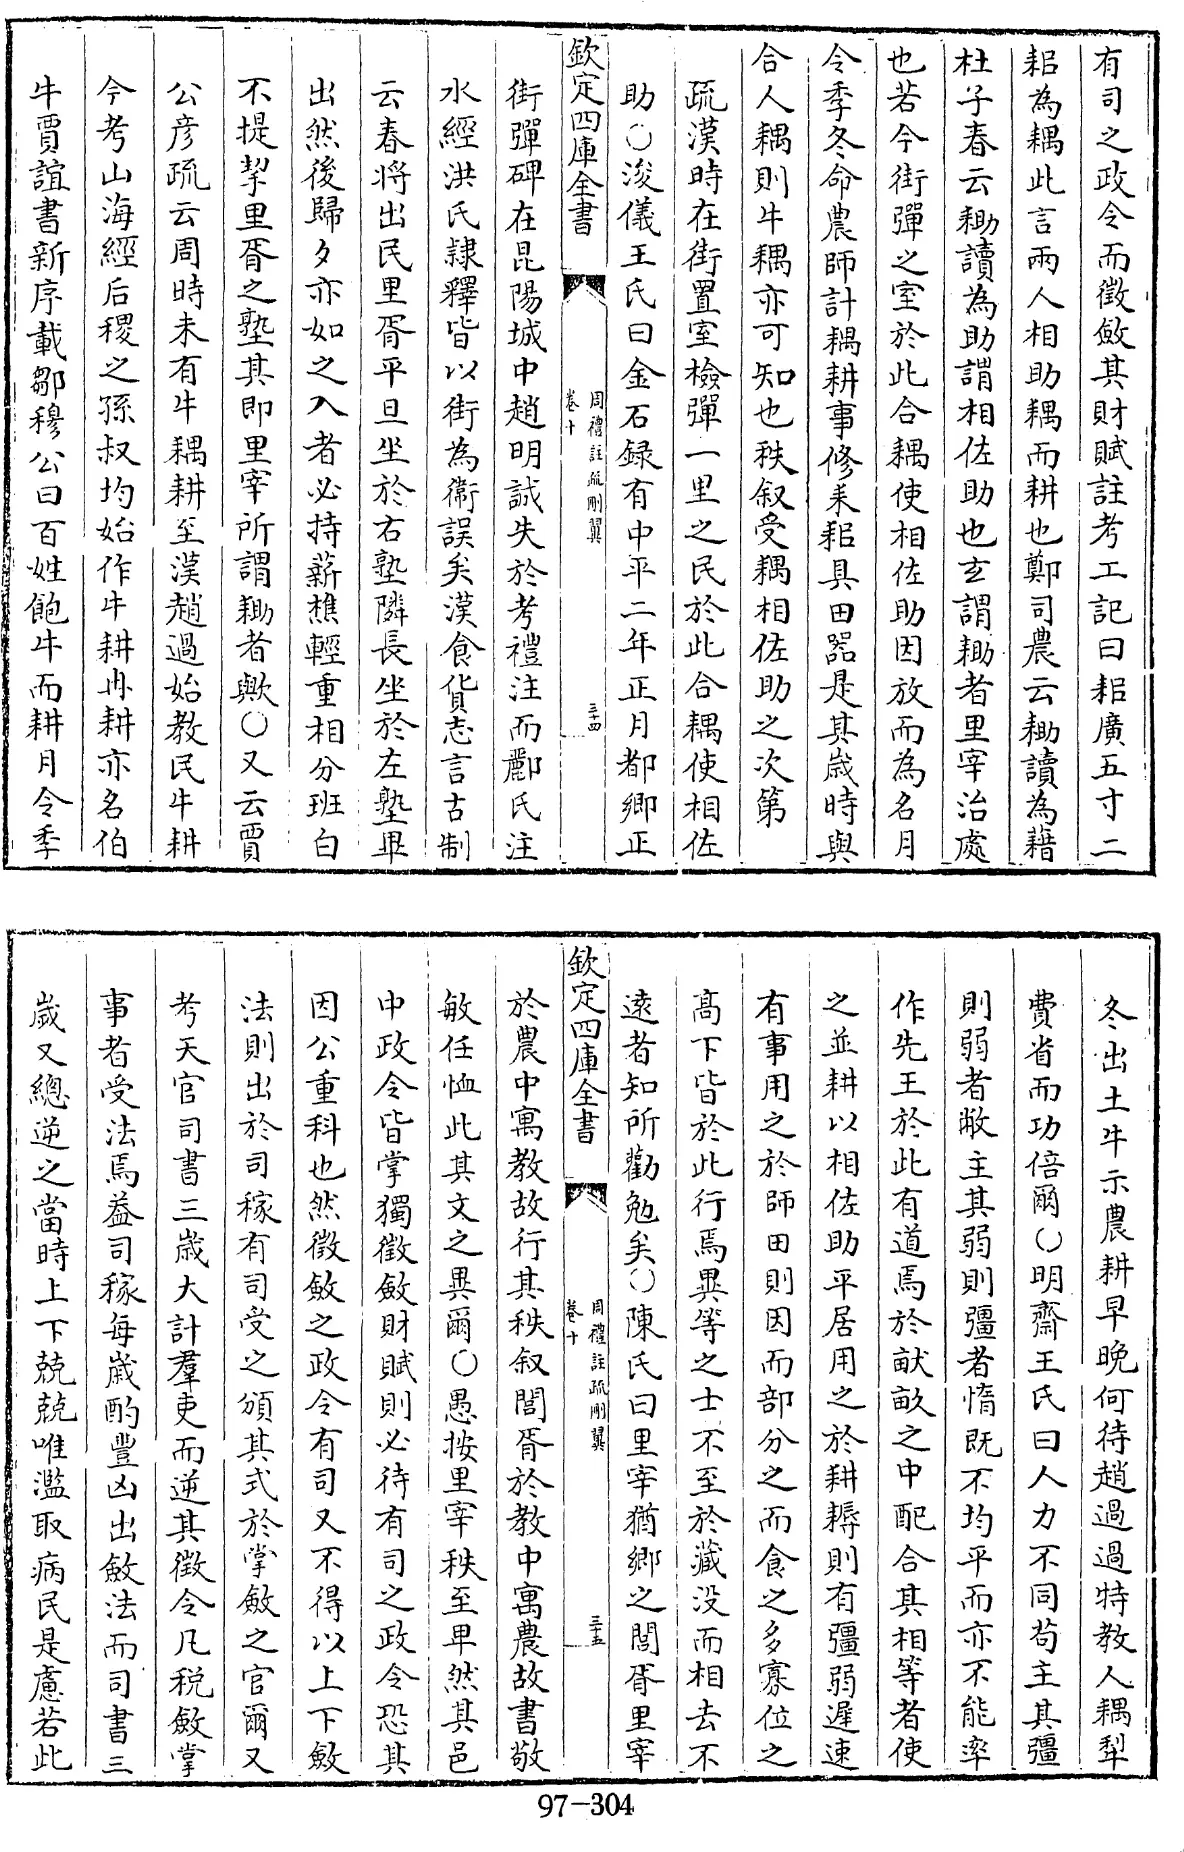 有司之政令而徵斂其財賦註考工記曰耜廣五寸二
耜為耦此言兩人相助耦而耕也鄭司農云耡讀為藉
杜子春云耡讀為助謂相佐助也玄謂耡者里宰治處
也若今街彈之室於此合耦使相佐助因放而為名月
令季冬命農師計耦耕事修耒耜具田器是其歲時與
合人耦則牛耦亦可知也秩叙受耦相佐助之次第
疏漢時在街置室檢彈一里之民於此合耦使相佐
助○浚儀王氏曰金石録有中平二年正月都鄉正
欽定四庫全書
周禮註疏刪翼
卷十
三十四
街彈碑在昆陽城中趙明誠失於考禮注而酈氏注
水經洪氏隷釋皆以街為衞誤矣漢食貨志言古制
云春將出民里胥平旦坐於右塾隣長坐於左塾畢
出然後歸夕亦如之入者必持薪樵輕重相分班白
不提挈里胥之塾其即里宰所謂耡者歟○又云賈
公彦疏云周時未有牛耦耕至漢趙過始教民牛耕
今考山海經后稷之孫叔均始作牛耕冉耕亦名伯
牛賈誼書新序載鄒穆公曰百姓飽牛而耕月令季
冬出土牛示農耕早晩何待趙過過特教人耦犁
費省而功倍爾○明齋王氏曰人力不同茍主其彊
則弱者敝主其弱則彊者惰既不均平而亦不能率
作先王於此有道焉於畎畝之中配合其相等者使
之並耕以相佐助平居用之於耕耨則有彊弱遲速
有事用之於師田則因而部分之而食之多寡位之
髙下皆於此行焉異等之士不至於藏没而相去不
逺者知所勸勉矣○陳氏曰里宰猶鄉之閭胥里宰
欽定四庫全書
周禮註疏刪翼
卷十
三十五
於農中寓教故行其秩叙閭胥於教中寓農故書敬
敏任恤此其文之異爾○愚按里宰秩至卑然其邑
中政令皆掌獨徵斂財賦則必待有司之政令恐其
因公重科也然徵斂之政令有司又不得以上下斂
法則出於司稼有司受之頒其式於掌斂之官爾又
考天官司書三歲大計羣吏而逆其徵令凡税斂掌
事者受法焉葢司稼每歲酌豐凶出斂法而司書三
歲又總逆之當時上下兢兢唯濫取病民是慮若此
97-304